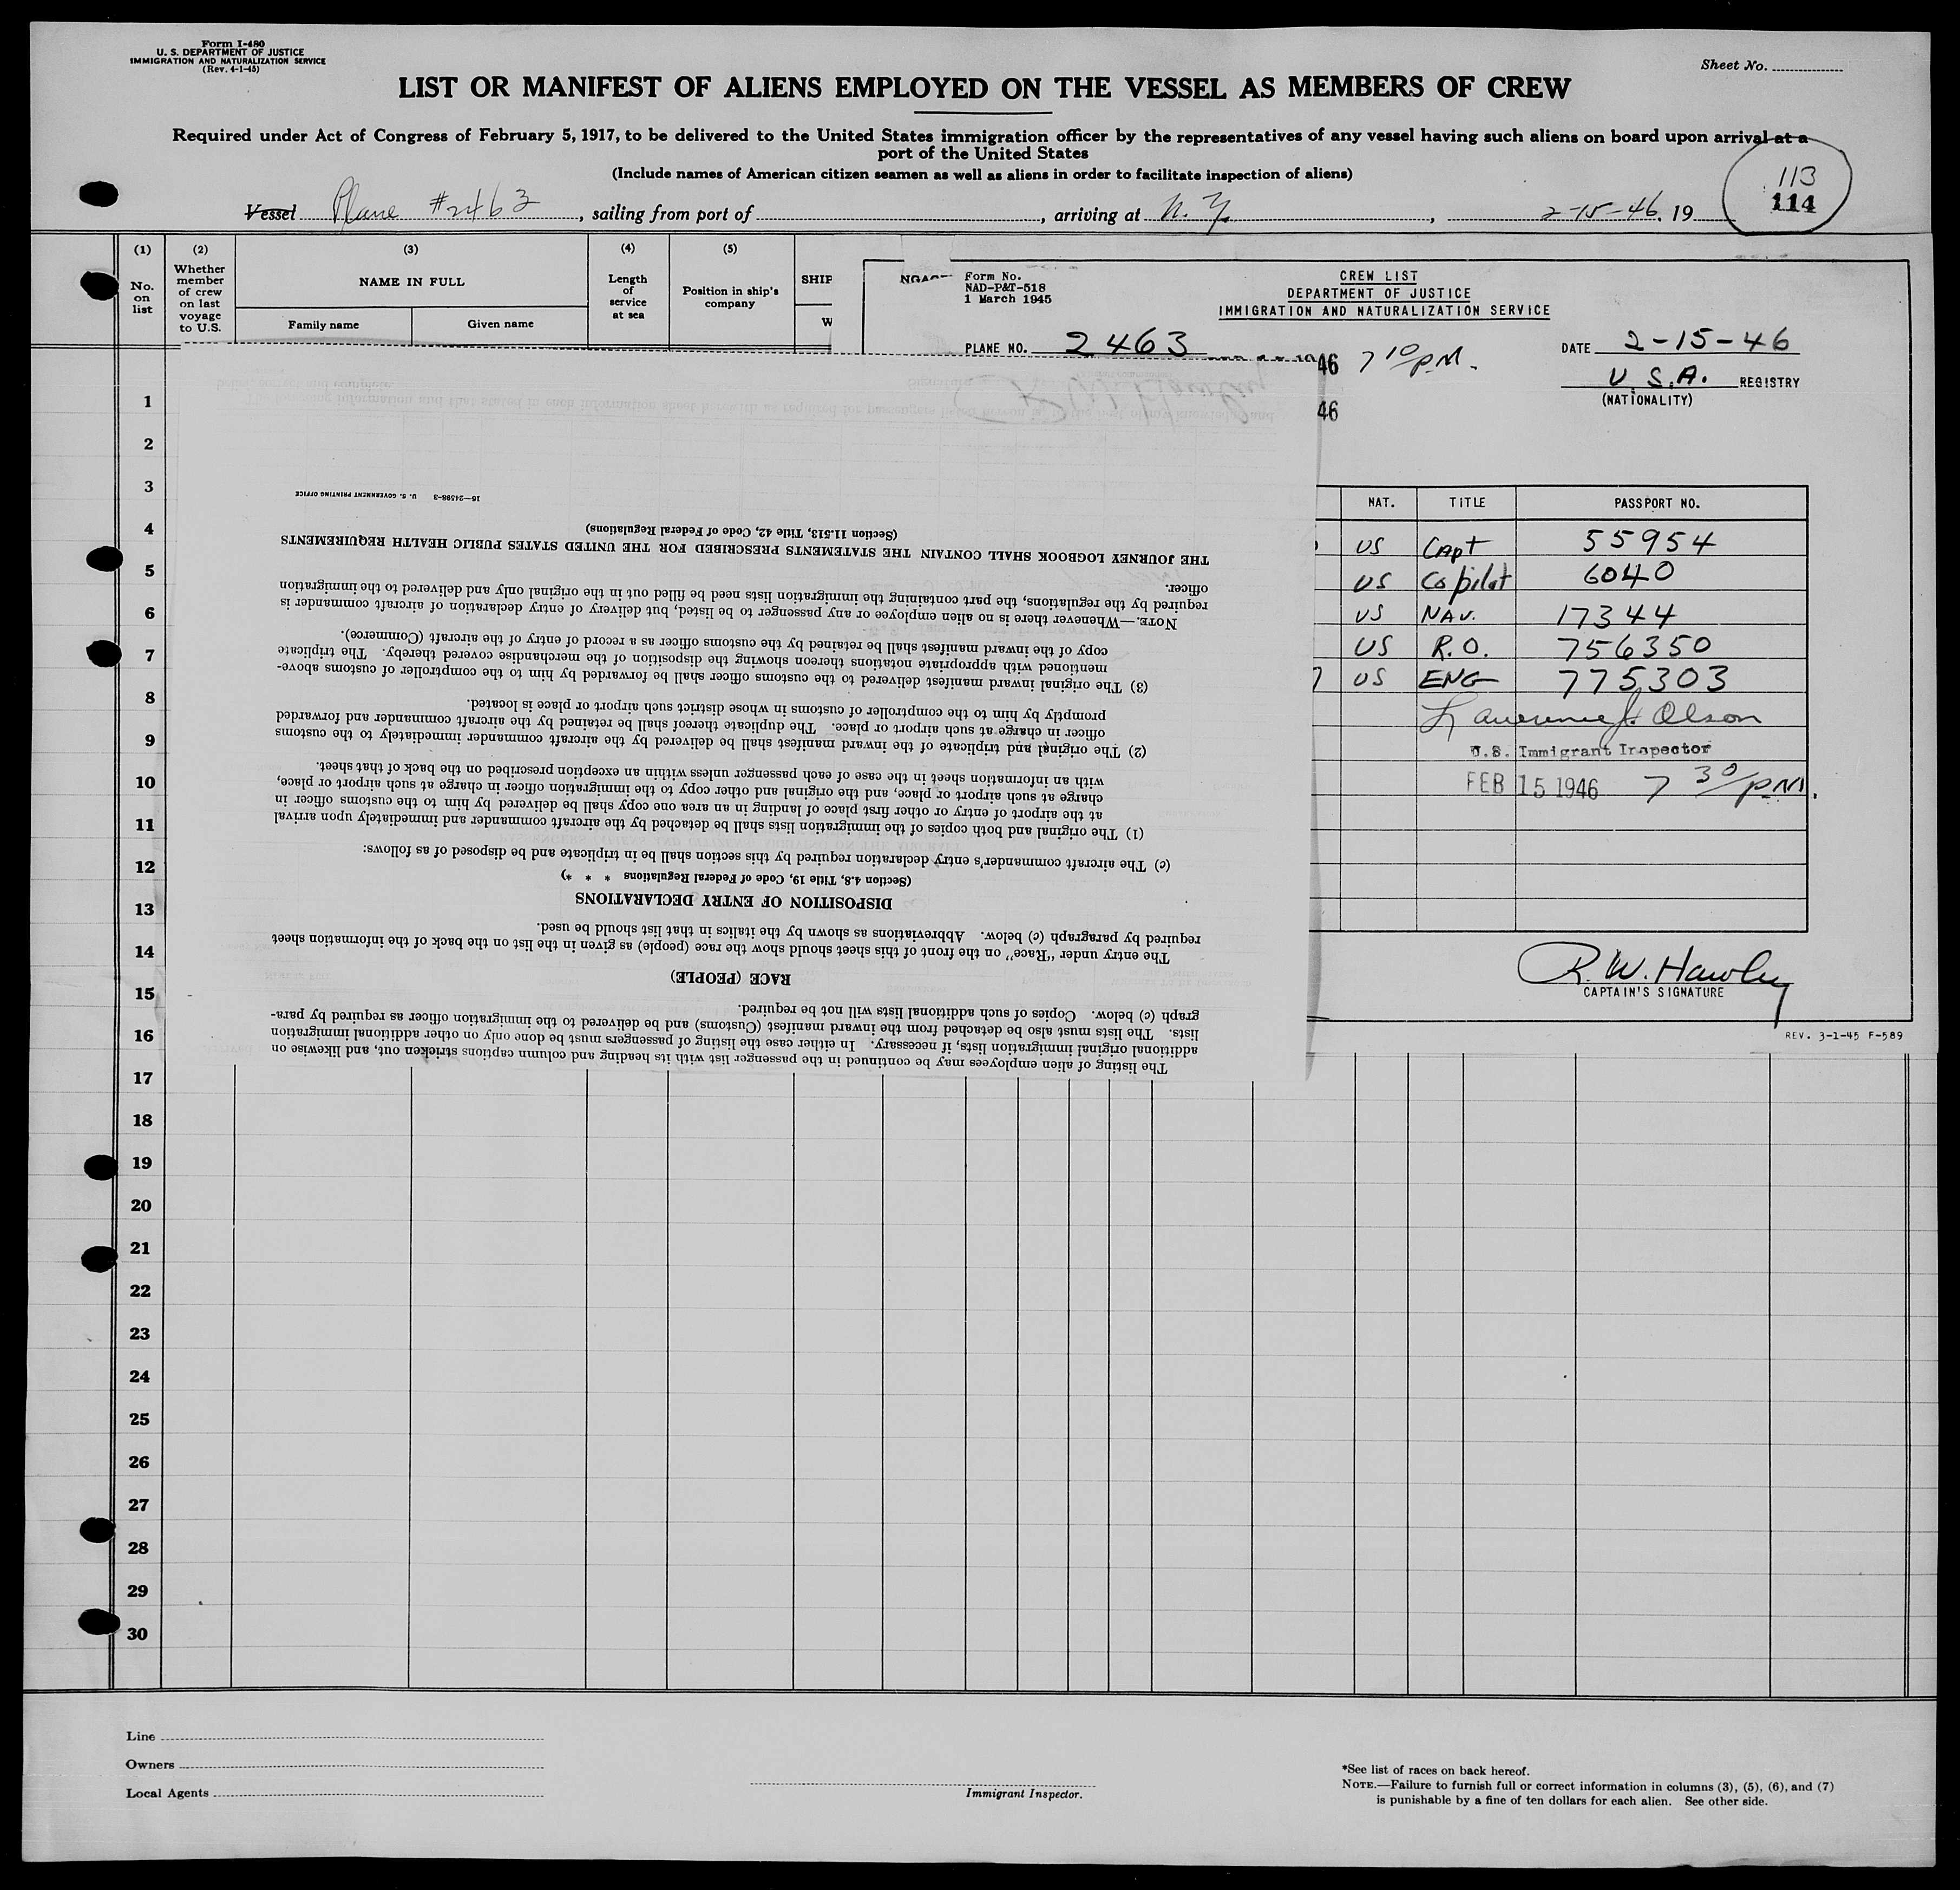 Form I-480
U. S. DEPARTMENT OF JUSTICE
IMMIGRATION AND NATURALIZATION SERVICE
(Rev. 4-1-45)
Sheet No.
LIST OR MANIFEST OF ALIENS EMPLOYED ON THE VESSEL AS MEMBERS OF CREW
Required under Act of Congress of February 5, 1917, to be delivered to the United States immigration officer by the representatives of any vessel having such aliens on board upon arrival at a
port of the United States
(Include names of American citizen seamen as well as aliens in order to facilitate inspection of aliens)
113
114
Vessel Plane #2463, sailing from port of , arriving at N. Y. , 2-15-46, 19
(1) (2) (3) (4) (5)
No. on list
Whether member of crew on last voyage to U.S.
NAME IN FULL
Family name Given name
Length of service at sea
Position in ship's company
SHIP
W
Form No.
NAD-P&T-518
1 March 1945
CREW LIST
DEPARTMENT OF JUSTICE
IMMIGRATION AND NATURALIZATION SERVICE
PLANE NO. 2463
46 7 10 P.M.
DATE 2-15-46
46
U.S.A. REGISTRY
(NATIONALITY)
NAT. TITLE PASSPORT NO.
US Capt 55954
US Copilot 6040
US NAV. 17344
US R.O. 756350
7 US ENG 775303
Lawrence J. Olson
U.S. Immigrant Inspector
FEB 15 1946 7 30 P.M.
R.W. Hawley
CAPTAIN'S SIGNATURE
REV. 3-1-45 F-589
The listing of alien employees may be continued in the passenger list with its heading and column captions stricken out, and likewise on
additional original immigration lists, if necessary. In either case the listing of passengers must be done only on other additional immigration
lists. The lists must also be detached from the inward manifest (Customs) and be delivered to the immigration officer as required by para-
graph (c) below. Copies of such additional lists will not be required.
RACE (PEOPLE)
The entry under "Race" on the front of this sheet should show the race (people) as given in the list on the back of the information sheet
required by paragraph (c) below. Abbreviations as shown by the italics in that list should be used.
DISPOSITION OF ENTRY DECLARATIONS
(Section 4.8, Title 19, Code of Federal Regulations * * *)
(c) The aircraft commander's entry declaration required by this section shall be in triplicate and be disposed of as follows:
(1) The original and both copies of the immigration lists shall be detached by the aircraft commander and immediately upon arrival
at the airport of entry or other first place of landing in an area one copy shall be delivered by him to the customs officer in
charge at such airport or place, and the original and other copy to the immigration officer in charge at such airport or place,
with an information sheet in the case of each passenger unless within an exception prescribed on the back of that sheet.
(2) The original and triplicate of the inward manifest shall be delivered by the aircraft commander immediately to the customs
officer in charge at such airport or place. The duplicate thereof shall be retained by the aircraft commander and forwarded
promptly by him to the comptroller of customs in whose district such airport or place is located.
(3) The original inward manifest delivered to the customs officer shall be forwarded by him to the comptroller of customs above-
mentioned with appropriate notations thereon showing the disposition of the merchandise covered thereby. The triplicate
copy of the inward manifest shall be retained by the customs officer as a record of entry of the aircraft (Commerce).
NOTE.—Whenever there is no alien employee or any passenger to be listed, but delivery of entry declaration of aircraft commander is
required by the regulations, the part containing the immigration lists need be filled out in the original only and delivered to the immigration
officer.
THE JOURNEY LOGBOOK SHALL CONTAIN THE STATEMENTS PRESCRIBED FOR THE UNITED STATES PUBLIC HEALTH REQUIREMENTS
(Section 11.513, Title 42, Code of Federal Regulations)
16—24598-3 U. S. GOVERNMENT PRINTING OFFICE
1
2
3
4
5
6
7
8
9
10
11
12
13
14
15
16
17
18
19
20
21
22
23
24
25
26
27
28
29
30
Line
Owners
Local Agents
Immigrant Inspector.
*See list of races on back hereof.
NOTE.—Failure to furnish full or correct information in columns (3), (5), (6), and (7)
is punishable by a fine of ten dollars for each alien. See other side.